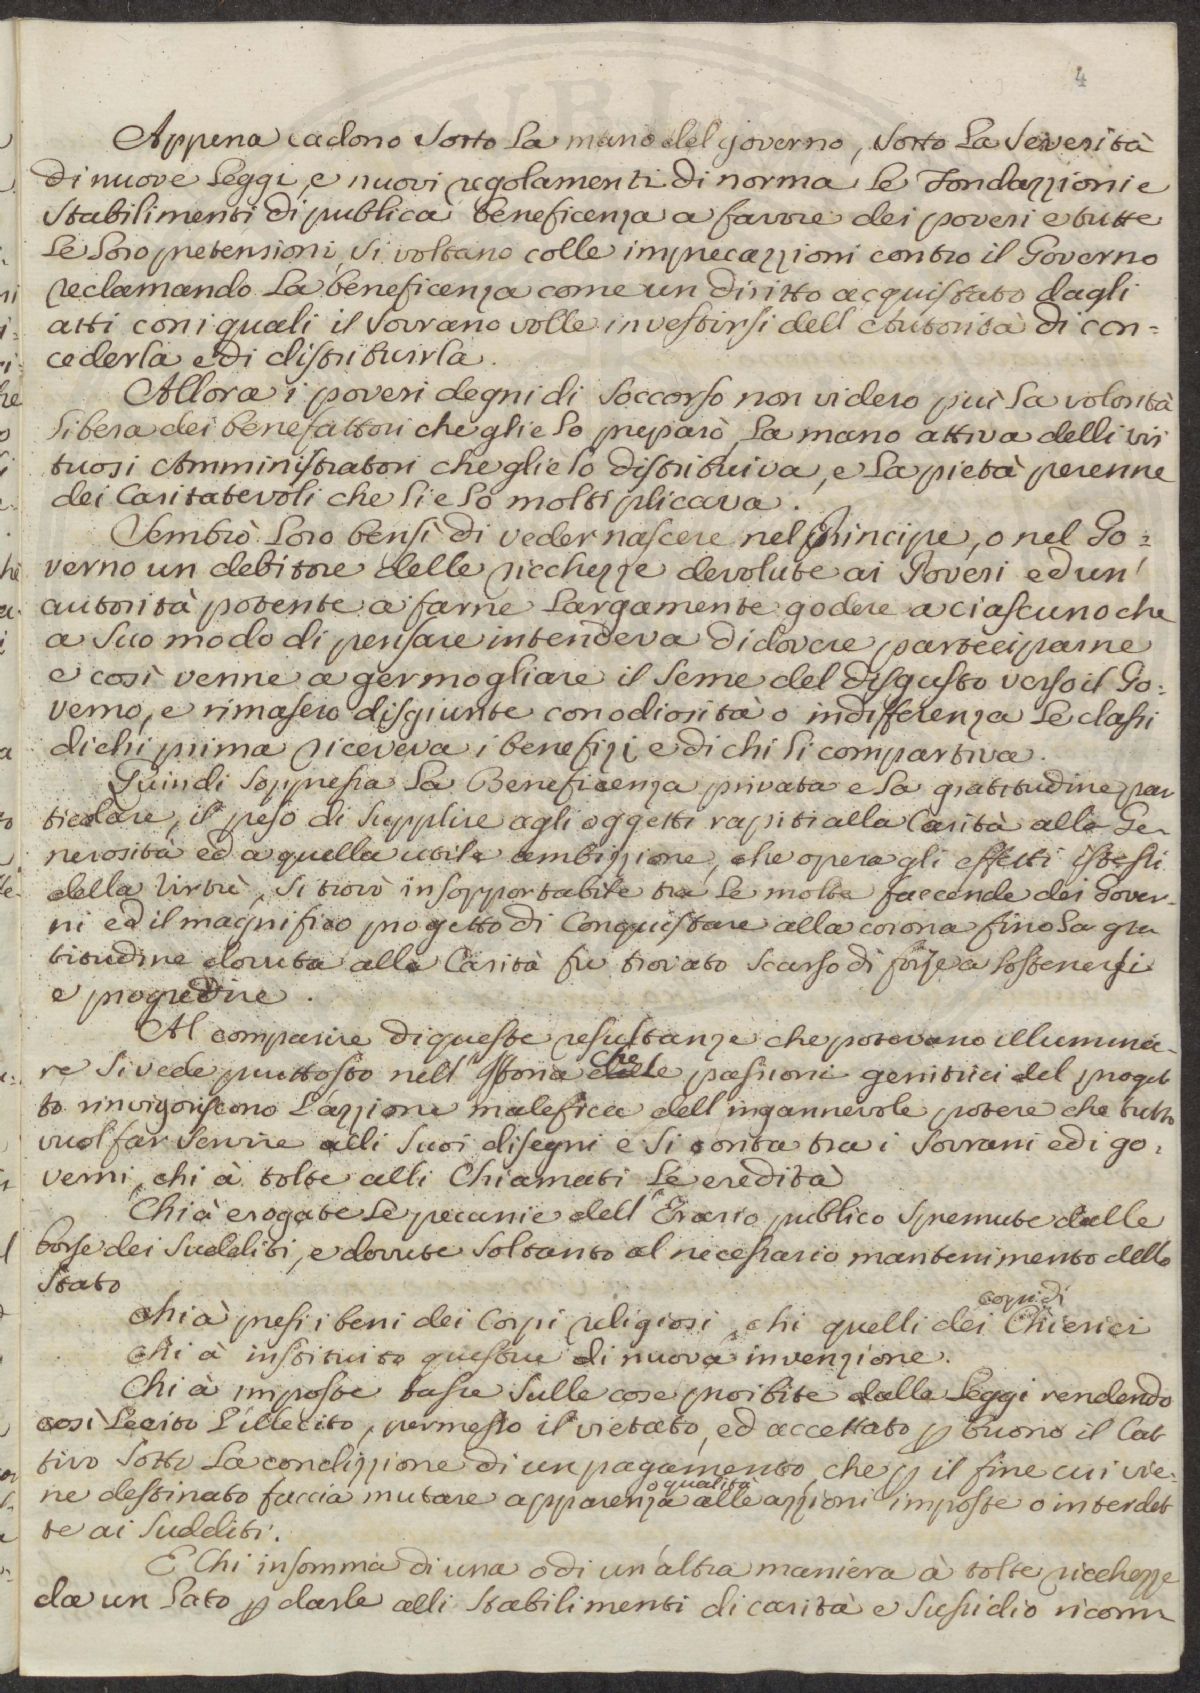 4
Appena cadono sotto la mano del governo, sotto la severità
di nuove leggi, e nuovi regolamenti di norma le Fondazzioni e
stabilimenti di publica beneficenza a favore dei poveri e tutte
le loro pretensioni, si voltano colle imprecazzioni contro il Governo
reclamando la beneficenza come un diritto acquistato dagli
atti con i quali il Sovrano volle investirsi dell'Autorità di con=
cederla e di distribuirla.
Allora i poveri degni di soccorso non videro più la volontà
libera dei benefattori che glie lo preparò, la mano attiva delli vir
tuosi Amministratori che glie lo distribuiva, e la pietà perenne
dei Caritatevoli che lie lo moltiplicava.
Sembrò loro bensì di veder nascere nel Principe, o nel Go=
verno un debitore delle ricchezze devolute ai Poveri ed un'
autorità potente a farne largamente godere a ciascuno che
a suo modo di pensare intendeva di dovere parteciparne
e così venne a germogliare il seme del disgusto verso il Go=
verno, e rimasero disgiunte con odiosità o indifferenza le classi
di chi prima riceveva i benefizi e di chi li compartiva.
Quindi soppressa la Beneficenza privata e la gratitudine par
ticolare, il peso di supplire agli oggetti rapiti alla Carità alla Ge-
nerosità ed a quella utile ambizzione, che opera gli effetti istessi
della Virtù, si trovò insopportabile tra le molte faccende dei Gover-
ni ed il magnifico progetto di conquistare alla corona fino la gra
titudine dovuta alla Carità fu trovato scarso di forze a sostenersi
e progredire.
Al comparire di queste resultanze che potevano illumina-
re si vede piuttosto nell'Istoria che le passioni genitrici del proget
to rinvigoriscono l'azzione malefica dell'ingannevole potere che tutto
vuol far servire alli suoi disegni e si conta tra i Sovrani ed i go=
verni, chi à tolte alli Chiamati le eredità
Chi à erogate le pecunie dell'Erario publico spremute dalle
borse dei sudditi, e dovute soltanto al necessario mantenimento dello
Stato
chi à presi i beni dei Corpi religiosi, chi quelli dei corpi di Chierici
chi à instituito questue di nuova invenzione.
Chi à imposte tasse sulle cose proibite dalle Leggi rendendo
così lecito l'illecito, permesso il vietato, ed accettato p buono il Cat
tivo sotto la condizzione di un pagamento, che p il fine cui vie=
ne destinato faccia mutare apparenza o qualità alle azzioni imposte o interdet
te ai sudditi.
E Chi insomma di una o di un'altra maniera à tolte ricchezze
da un lato p darle alli stabilimenti di carità e sussidio ricom-